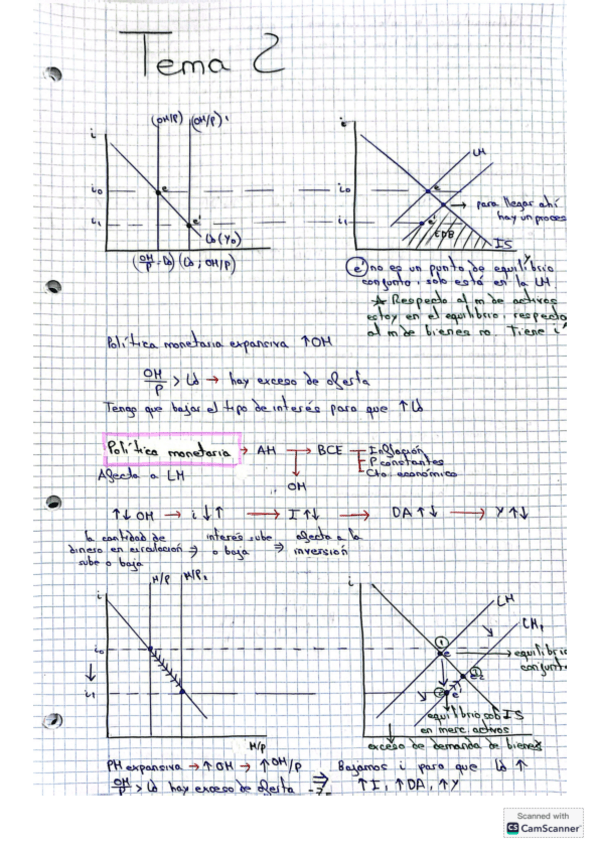 Tema 2
i
(OM/P)
(OM/P)'
i
LM
i₀
e
i₀
e
para llegar ahí
hay un proces
i₁
e'
i₁
e'
EDB
Ld (Y₀)
IS
(OM/P = Ld) (Ld ; OM/P)
e' no es un punto de equilibrio
conjunto, solo está en la LM.
★ Respecto al m de activos
estoy en el equilibrio, respecto
al m de bienes no. Tiene i
Política monetaria expansiva ↑OM
OM/P > Ld → hay exceso de oferta
Tengo que bajar el tipo de interés para que ↑Ld
Política monetaria → AM → BCE
Inflación
P constantes
Cto. económico
Afecta a LM
OM
↑↓ OM → i ↓↑ → I ↑↓ → DA ↑↓ → Y ↑↓
la cantidad de dinero en circulación sube o baja ⇒ interés sube o baja ⇒ afecta a la inversión
i
M/P
M/P₁
i
LM
LM₁
i₀
①
e
equilibrio
conjunto
②
i₁
e'
equilibrio sob IS
en merc. activos
M/P
exceso de demanda de bienes
PM expansiva → ↑OM → ↑OM/P
Bajamos i para que Ld ↑
OM/P > Ld hay exceso de oferta ⇒
↑I, ↑DA, ↑Y
Scanned with
CS CamScanner